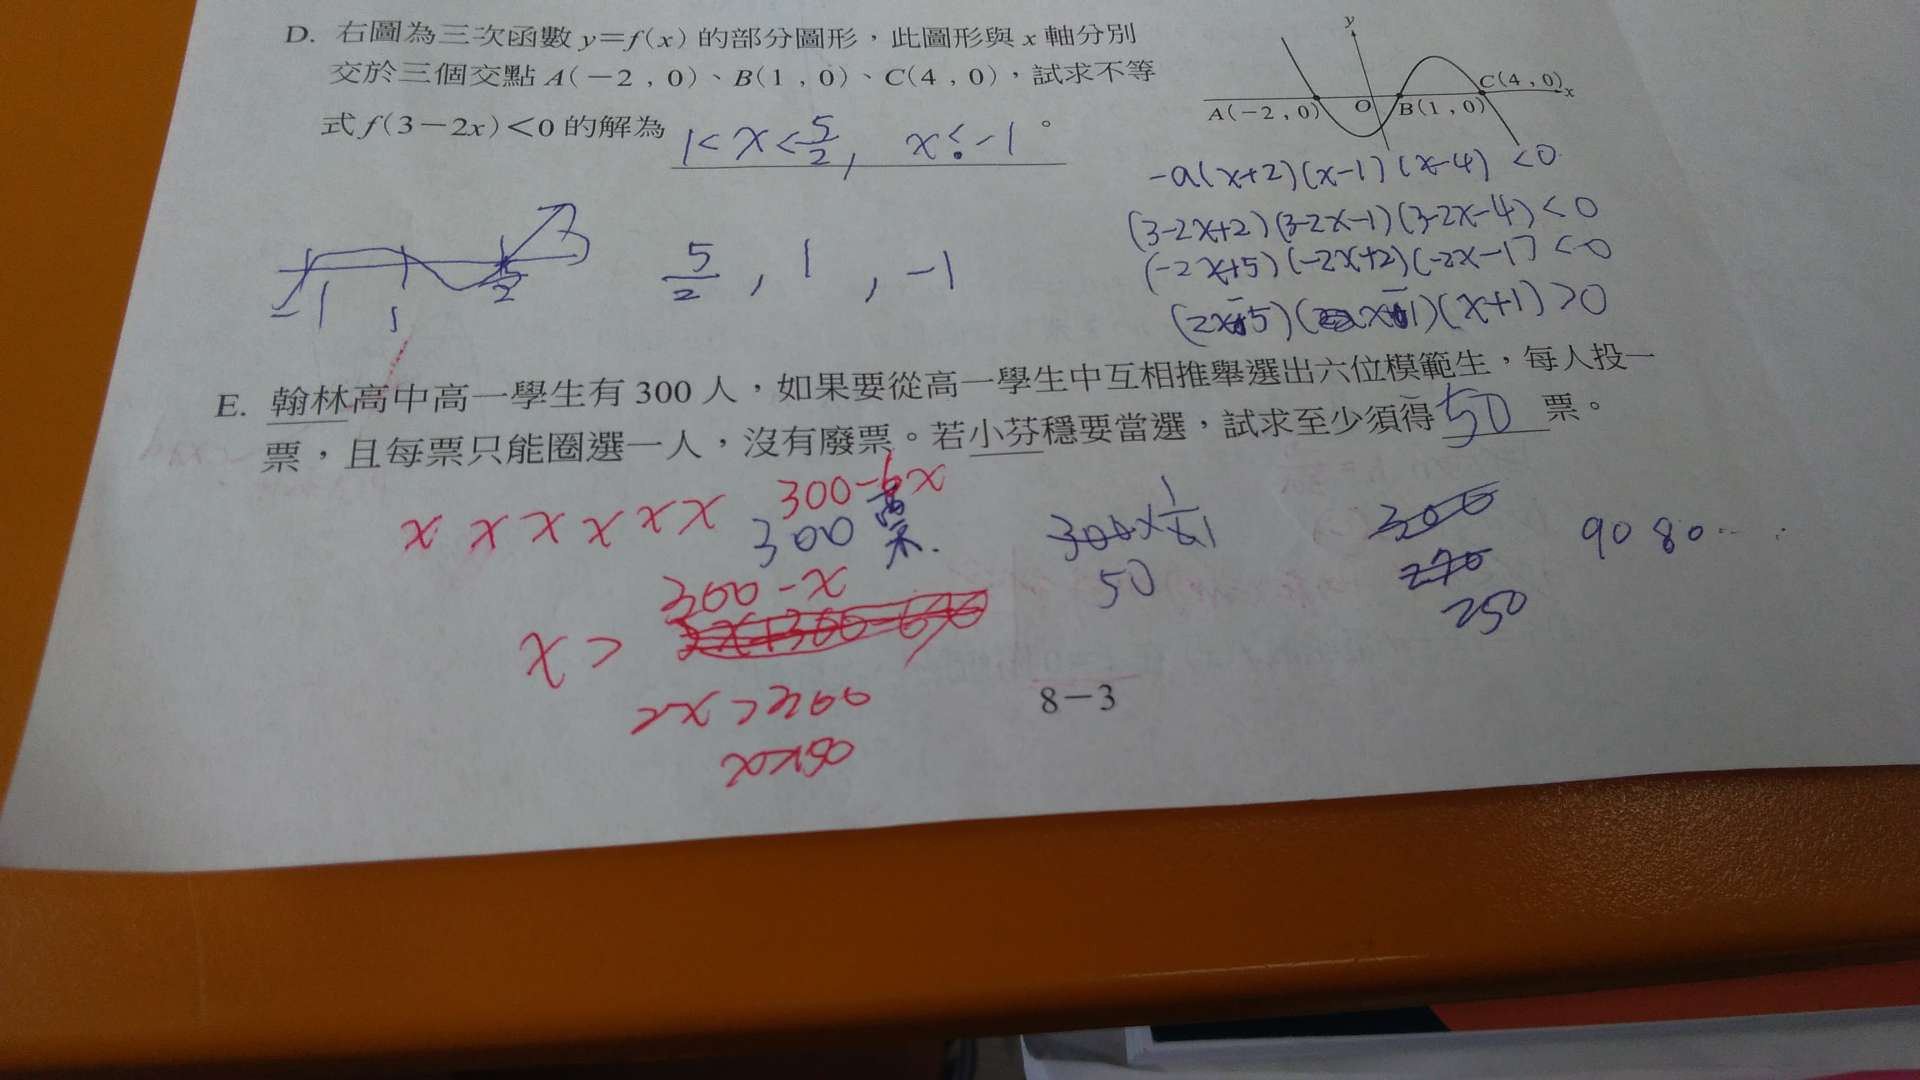 D. 右圖為三次函數 y=f(x) 的部分圖形，此圖形與 x 軸分別
交於三個交點 A(-2,0)、B(1,0)、C(4,0)，試求不等
式 f(3-2x)<0 的解為 1<x<5/2, x<-1 。
y
C(4,0)
x
A(-2,0) O B(1,0)
-a(x+2)(x-1)(x-4) <0
(3-2x+2)(3-2x-1)(3-2x-4)<0
(-2x+5)(-2x+2)(-2x-1)<0
(2x-5)(x-1)(x+1)>0
-1 1 5/2
5/2, 1, -1
E. 翰林高中高一學生有 300 人，如果要從高一學生中互相推舉選出六位模範生，每人投一
票，且每票只能圈選一人，沒有廢票。若小芬穩要當選，試求至少須得 50 票。
x x x x x x 300-6x
300 票.
300×1/6 1
50
300
270
250
90 80
300-x
x>
2x>300
x>150
8-3